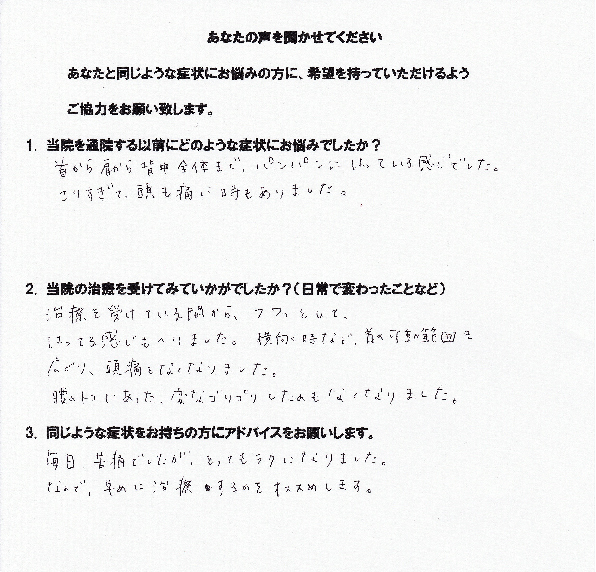 あなたの声を聞かせてください
あなたと同じような症状にお悩みの方に、希望を持っていただけるよう
ご協力をお願い致します。
1. 当院を通院する以前にどのような症状にお悩みでしたか？
首から肩から背中全体まで、パンパンにはっている感じでした。
こりすぎて、頭も痛い時もありました。
2. 当院の治療を受けてみていかがでしたか？（日常で変わったことなど）
治療を受けている間から、フワッとして、
はってる感じもへりました。横向く時など、首の可動範囲も
広がり、頭痛もなくなりました。
腰の下にあった、変なゴリゴリしたのもなくなりました。
3. 同じような症状をお持ちの方にアドバイスをお願いします。
毎日、苦痛でしたが、とってもラクになりました。
なので、早めに治療するのをオススメします。